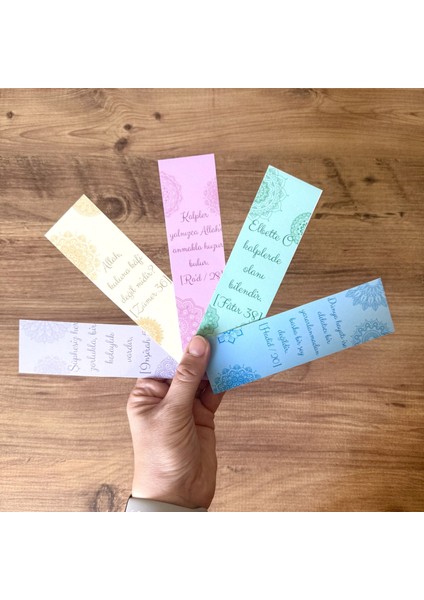 Şüphesiz her
zorlukla, bir
kolaylık
vardır.
[İnşirah
Allah,
kuluna kâfi
değil midir?
[Zümer 36]
Kalpler
yalnızca Allah'ı
anmakla huzur
bulur.
[Rad / 28]
Elbette O,
kalplerde
olanı
bilendir.
[Fâtır 38]
Dünya hayatı ise
aldatan bir
yararlanmadan
başka bir şey
değildir.
[Hadid / 20]